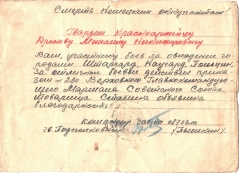 Смерть немецким оккупантам!
Гвардии Красноармейцу
Михаилу Никифоровичу
Вам, участнику боев за овладение го-
родами Штаргард, Наугард, Польцин,
За отличные боевые действия прика-
зом № 280 Верховного Главнокомандую-
щего Маршала Советского Союза
Товарища Сталина объявлена
благодарность.
Командир части
Гв. Подполковник